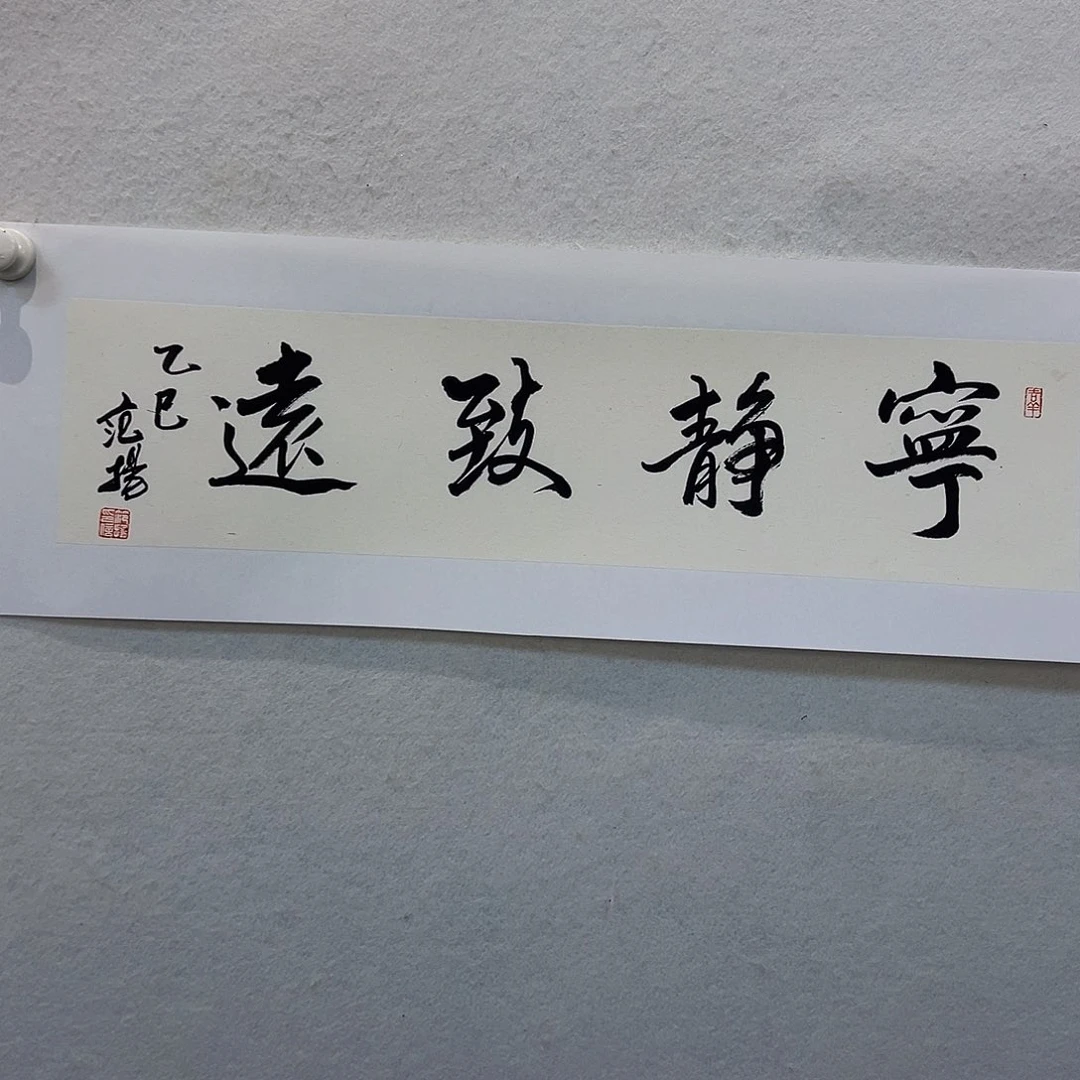 寧靜致遠
乙巳
范揚